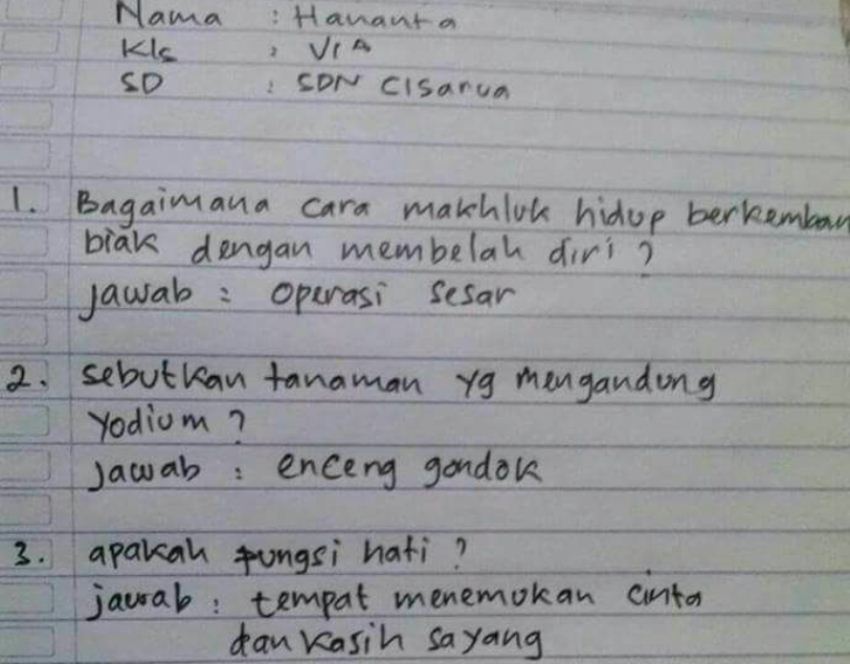 Nama : Hananta
Kls : VI A
SD : SDN Cisarua
1. Bagaimana cara makhluk hidup berkemban
biak dengan membelah diri ?
jawab : operasi sesar
2. sebutkan tanaman yg mengandung
yodium ?
jawab : enceng gondok
3. apakah fungsi hati ?
jawab : tempat menemukan cinta
dan kasih sayang